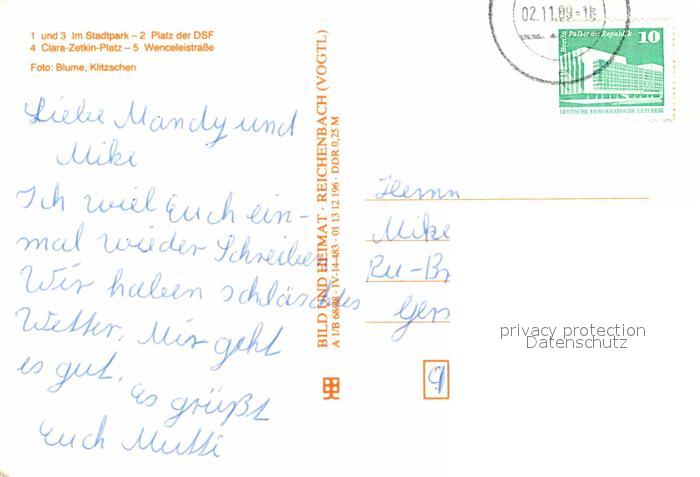 1 und 3 Im Stadtpark – 2 Platz der DSF
4 Clara-Zetkin-Platz – 5 Wenceleistraße
Foto: Blume, Klitzschen
Liebe Mandy und
Mike
Ich wiel Euch ein-
mal wieder Schreiben
Wir haben schläschtes
Wetter. Mir geht
es gut. es grüßt
Euch Mutti
BILD UND HEIMAT · REICHENBACH (VOGTL)
A 1/B 68/88 · IV-14-483 · 01 13 12 196 · DDR 0,25 M
02.11.89-16
Berlin Palast der Republik 10
DEUTSCHE DEMOKRATISCHE REPUBLIK
Herrn
Mike
privacy protection
Datenschutz